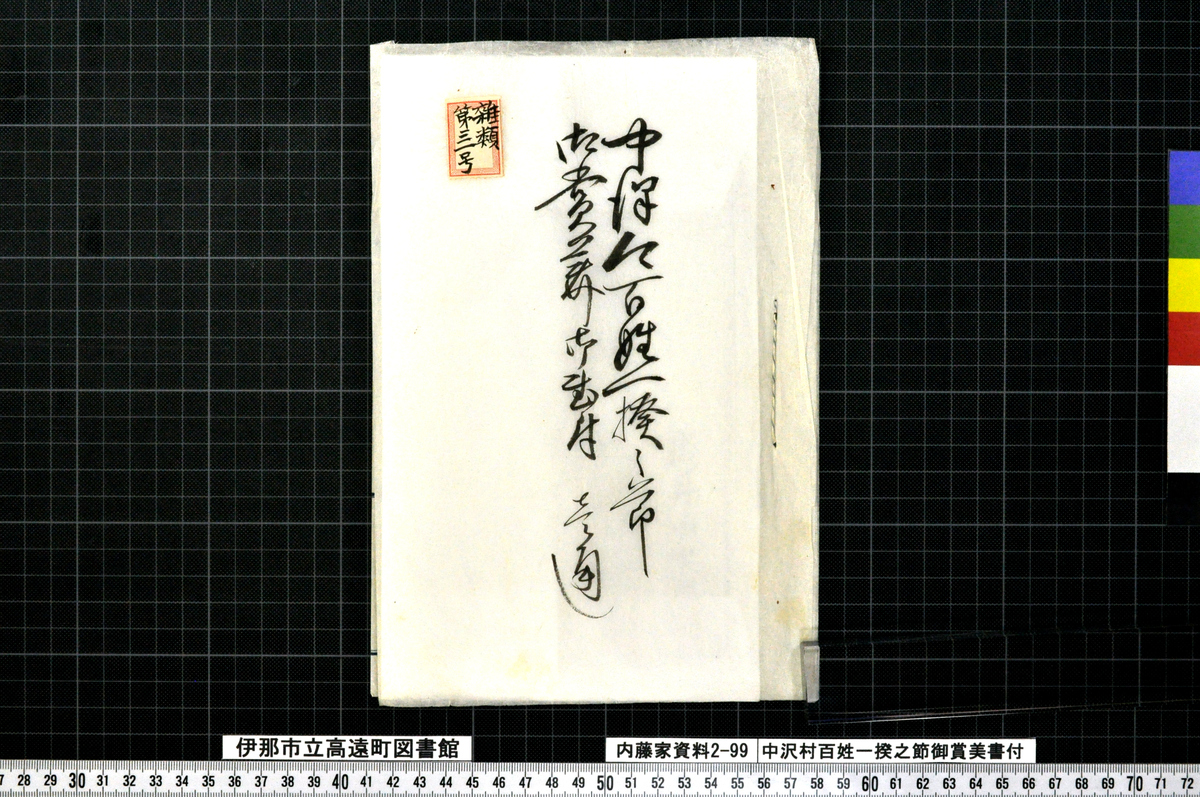 雜類
第三号
中澤村百姓一揆之節
御賞美御書付 壱通
伊那市立高遠町図書館
内藤家資料2-99 中沢村百姓一揆之節御賞美書付
7 28 29 30 31 32 33 34 35 36 37 38 39 40 41 42 43 44 45 46 47 48 49 50 51 52 53 54 55 56 57 58 59 60 61 62 63 64 65 66 67 68 69 70 71 72